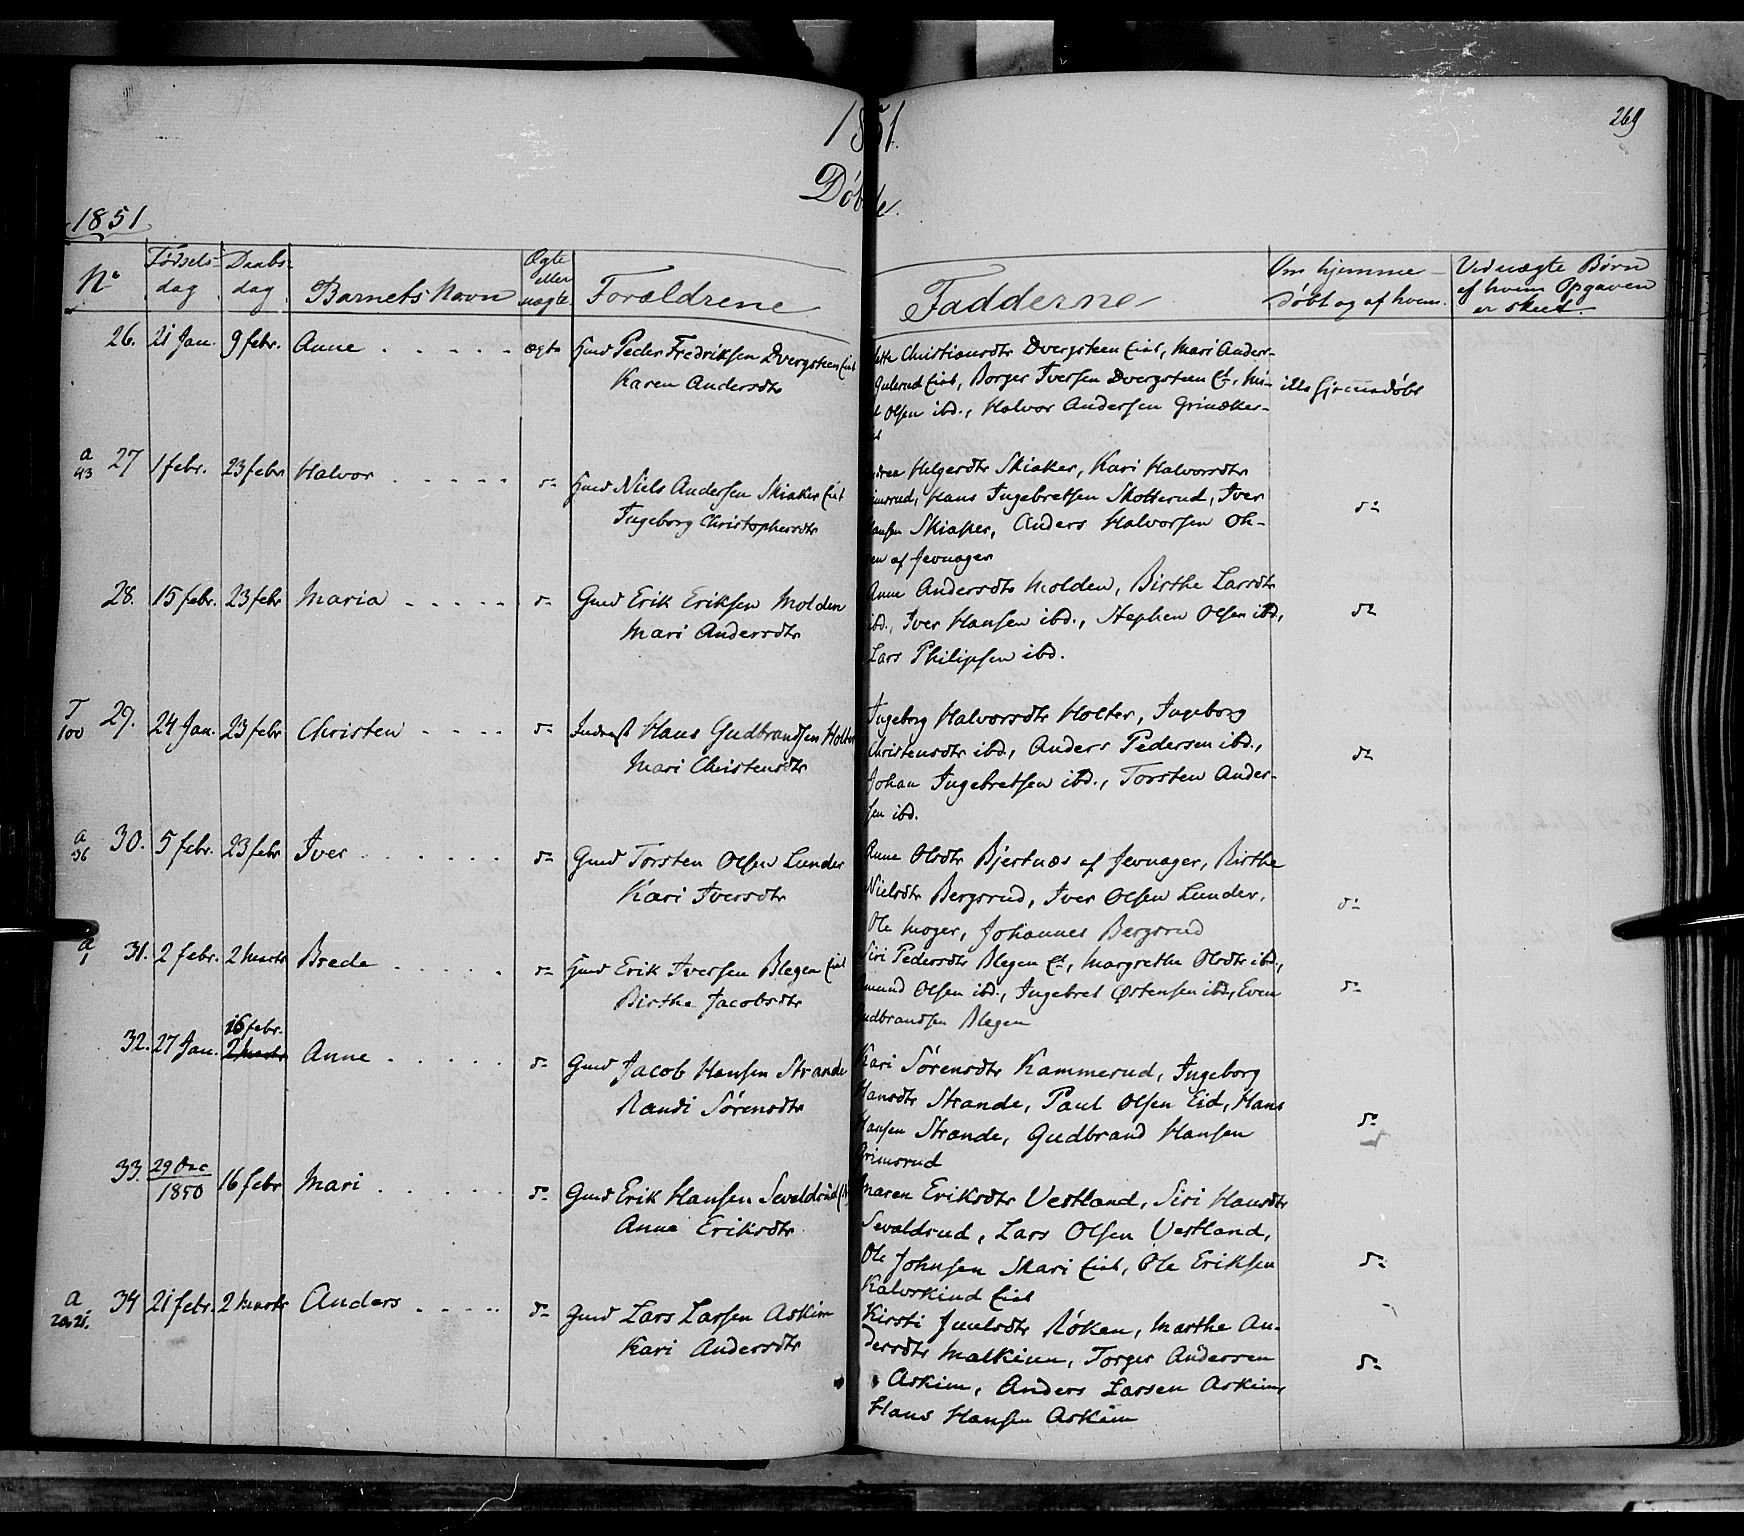 1851.
269
Døbte.
1851.
No
Fødsels-
dag
Daabs-
dag
Barnets Navn
Ægte
eller
uægte
Forældrene
Fadderne
Om hjemme-
døbt og af hvem.
Ved uægte Børn
af hvem Opgaven
er skeet.
26. 21 Jan. 9 febr. Anne . . . . . ægte Gmd Peder Fredriksen Dvergsteen Eiet
Karen Andersdtr
Christiansdtr Dvergsteen Eiet, Mari Anders-
Gulerud Eiet, Borger Iversen Dvergsteen Et,
Olsen ibd., Halvor Andersen Grinaker-
ikke hjemmedøbt
a 43 27 1 febr. 23 febr Halvor . . . . . do Gmd Niels Andersen Skiaker Eiet
Ingeborg Christophersdtr
Helgesdtr Skiaker, Kari Halvorsdtr
Hans Ingebretsen Skotterud, Iver
Hansen Skiaker, Anders Halvorsen Oh-
en af Jevnager
do
28. 15 febr. 23 febr Maria . . . . . do Gmd Erik Eriksen Molden
Mari Andersdtr
Anne Andersdtr Molden, Birthe Larsdtr
ibd., Iver Hansen ibd., Stephen Olsen ibd,
Lars Philipsen ibd.
do
T 100 29. 24 Jan. 23 febr Christen . . . . do Inderst Hans Gudbrandsen Holter
Mari Christensdtr
Ingeborg Halvorsdtr Holter, Ingeborg
Christensdtr ibd., Anders Pedersen ibd.,
Johan Ingebretsen ibd., Torsten Ander-
sen ibd.
do
a 36 30. 5 febr. 23 febr Iver . . . . . . do Gmd Torsten Olsen Lunder
Kari Iversdtr
Anne Olsdtr Bjertnæs af Jevnager, Birthe
Nielsdtr Bergsrud, Iver Olsen Lunder,
Ole Moger, Johannes Bergsrud
do
a 1 31. 2 febr. 2 Marts Brede . . . . . do Gmd Erik Iversen Blegen Eiet
Birthe Jacobsdtr
Siri Pedersdtr Blegen Et, Margrethe Olsdtr ibd.,
Amund Olsen ibd., Ingebret Østensen ibd, Even
Gudbrandsen Blegen
do
16 febr.
32. 27 Jan. 2 Marts Anne . . . . . do Gmd Jacob Hansen Strande
Randi Sørensdtr
Kari Sørensdtr Kammerud, Ingeborg
Hansdtr Strande, Paul Olsen Eid, Hans
Hansen Strande, Gudbrand Hansen
Grimsrud
do
33. 29 Dec 1850 16 febr Mari . . . . . . do Gmd Erik Hansen Sevaldrud Et
Anne Eriksdtr
Maren Eriksdtr Vestland, Siri Hansdtr
Sevaldrud, Lars Olsen Vestland,
Ole Johnsen Skari Eiet, Ole Eriksen
Kalvskind Eiet
do
a 20, 21. 34 21 febr. 2 Marts Anders . . . . . do Gmd Lars Larsen Askim
Kari Andersdtr
Kirsti Juulsdtr Røken, Marthe An-
dersdtr Malkinn, Torger Andersen
Askim, Anders Larsen Askim,
Hans Hansen Askim
do